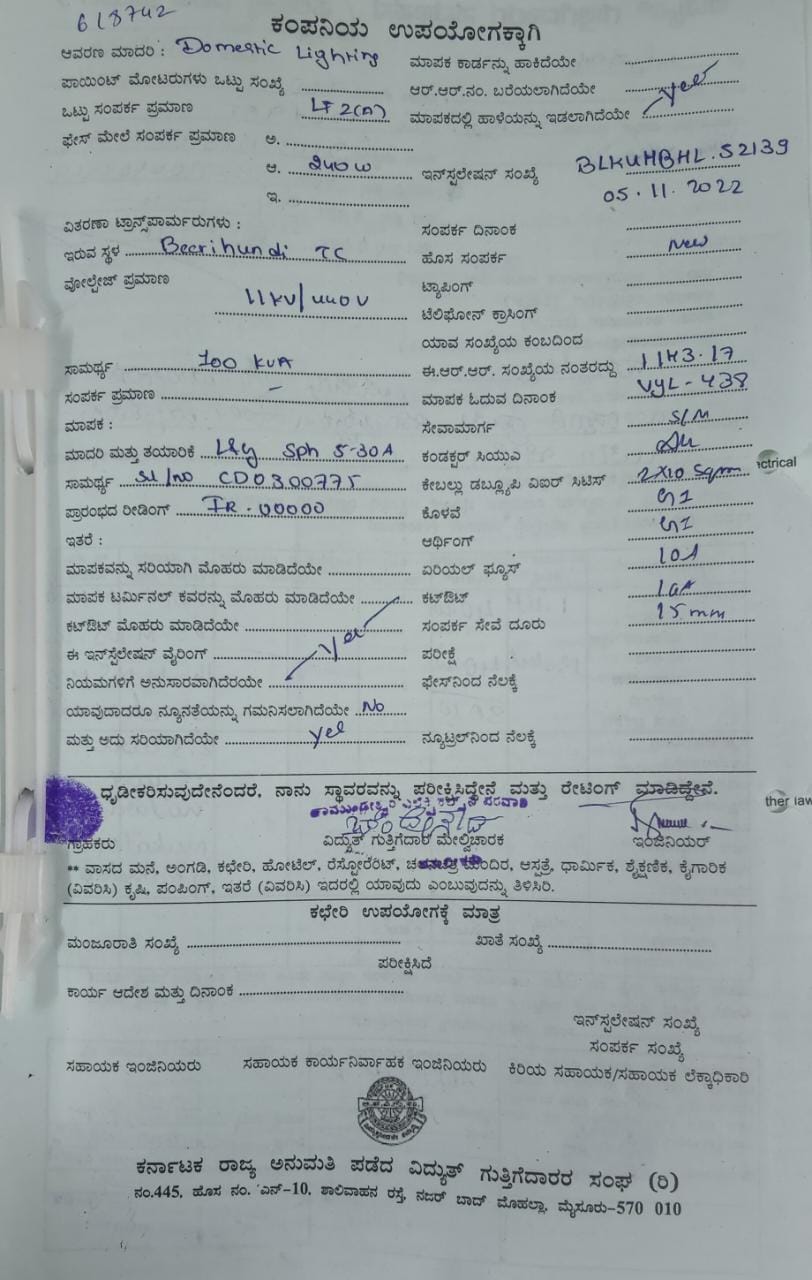 618742
ಕಂಪನಿಯ ಉಪಯೋಗಕ್ಕಾಗಿ
ಆವರಣ ಮಾದರಿ : Domestic Lighting ಮಾಪಕ ಕಾರ್ಡನ್ನು ಹಾಕಿದೆಯೇ
ಪಾಯಿಂಟ್ ಮೋಟರುಗಳು ಒಟ್ಟು ಸಂಖ್ಯೆ ಆರ್.ಆರ್.ನಂ. ಬರೆಯಲಾಗಿದೆಯೇ yes
ಒಟ್ಟು ಸಂಪರ್ಕ ಪ್ರಮಾಣ LT 2(A) ಮಾಪಕದಲ್ಲಿ ಹಾಳೆಯನ್ನು ಇಡಲಾಗಿದೆಯೇ
ಫೇಸ್ ಮೇಲೆ ಸಂಪರ್ಕ ಪ್ರಮಾಣ ಅ.
ಆ. 240 W ಇನ್ಸ್ಪಲೇಷನ್ ಸಂಖ್ಯೆ BLKUHBHL.52139
ಇ. 05.11.2022
ವಿತರಣಾ ಟ್ರಾನ್ಸ್‌ಪಾರ್ಮರುಗಳು : ಸಂಪರ್ಕ ದಿನಾಂಕ
ಇರುವ ಸ್ಥಳ Beerihundi TC ಹೊಸ ಸಂಪರ್ಕ New
ವೋಲ್ಟೇಜ್ ಪ್ರಮಾಣ 11KV/440V ಟ್ಯಾಪಿಂಗ್
ಟೆಲಿಫೋನ್ ಕ್ರಾಸಿಂಗ್
ಯಾವ ಸಂಖ್ಯೆಯ ಕಂಬದಿಂದ
ಸಾಮರ್ಥ್ಯ 100 KVA ಈ.ಆರ್.ಆರ್. ಸಂಖ್ಯೆಯ ನಂತರದ್ದು 1143.17
ಸಂಪರ್ಕ ಪ್ರಮಾಣ – ಮಾಪಕ ಓದುವ ದಿನಾಂಕ VYL-438
ಮಾಪಕ : ಸೇವಾಮಾರ್ಗ S/M
ಮಾದರಿ ಮತ್ತು ತಯಾರಿಕೆ L&G Sph 5-30A ಕಂಡಕ್ಟರ್ ಸಿಯುಎ
ಸಾಮರ್ಥ್ಯ Sl/no CD0300775 ಕೇಬಲ್ಲು ಡಬ್ಲ್ಯೂಪಿ ವಿಐರ್ ಸಿಟಿಸ್ 2X10 Sqmm
ಪ್ರಾರಂಭದ ರೀಡಿಂಗ್ IR-00000 ಕೊಳವೆ GI
ಇತರೆ : ಆರ್ಥಿಂಗ್ GI
ಮಾಪಕವನ್ನು ಸರಿಯಾಗಿ ಮೊಹರು ಮಾಡಿದೆಯೇ ಏರಿಯಲ್ ಫ್ಯೂಸ್ 10A
ಮಾಪಕ ಟರ್ಮಿನಲ್ ಕವರನ್ನು ಮೊಹರು ಮಾಡಿದೆಯೇ ಕಟ್‌ಔಟ್
ಕಟ್‌ಔಟ್ ಮೊಹರು ಮಾಡಿದೆಯೇ yes ಸಂಪರ್ಕ ಸೇವೆ ದೂರು 15 mm
ಈ ಇನ್ಸ್ಪಲೇಷನ್ ವೈರಿಂಗ್ ಪರೀಕ್ಷೆ
ನಿಯಮಗಳಿಗೆ ಅನುಸಾರವಾಗಿದೆರಯೇ ಫೇಸ್‌ನಿಂದ ನೆಲಕ್ಕೆ
ಯಾವುದಾದರೂ ನ್ಯೂನತೆಯನ್ನು ಗಮನಿಸಲಾಗಿದೆಯೇ No
ಮತ್ತು ಅದು ಸರಿಯಾಗಿದೆಯೇ yes ನ್ಯೂಟ್ರಲ್‌ನಿಂದ ನೆಲಕ್ಕೆ
ಧೃಡೀಕರಿಸುವುದೇನೆಂದರೆ, ನಾನು ಸ್ಥಾವರವನ್ನು ಪರೀಕ್ಷಿಸಿದ್ದೇನೆ ಮತ್ತು ರೇಟಿಂಗ್ ಮಾಡಿದ್ದೇವೆ.
ಗ್ರಾಹಕರು ವಿದ್ಯುತ್ ಗುತ್ತಿಗೆದಾರ ಮೇಲ್ವಿಚಾರಕ ಇಂಜಿನಿಯರ್
** ವಾಸದ ಮನೆ, ಅಂಗಡಿ, ಕಛೇರಿ, ಹೋಟೆಲ್, ರೆಸ್ಟೋರೆಂಟ್, ಚಲನಚಿತ್ರ ಮಂದಿರ, ಆಸ್ಪತ್ರೆ, ಧಾರ್ಮಿಕ, ಶೈಕ್ಷಣಿಕ, ಕೈಗಾರಿಕ
(ವಿವರಿಸಿ) ಕೃಷಿ, ಪಂಪಿಂಗ್, ಇತರೆ (ವಿವರಿಸಿ) ಇದರಲ್ಲಿ ಯಾವುದು ಎಂಬುವುದನ್ನು ತಿಳಿಸಿರಿ.
ಕಛೇರಿ ಉಪಯೋಗಕ್ಕೆ ಮಾತ್ರ
ಮಂಜೂರಾತಿ ಸಂಖ್ಯೆ ಖಾತೆ ಸಂಖ್ಯೆ
ಪರೀಕ್ಷಿಸಿದೆ
ಕಾರ್ಯ ಆದೇಶ ಮತ್ತು ದಿನಾಂಕ
ಇನ್ಸ್ಪಲೇಷನ್ ಸಂಖ್ಯೆ
ಸಂಪರ್ಕ ಸಂಖ್ಯೆ
ಸಹಾಯಕ ಇಂಜಿನಿಯರು ಸಹಾಯಕ ಕಾರ್ಯನಿರ್ವಾಹಕ ಇಂಜಿನಿಯರು ಕಿರಿಯ ಸಹಾಯಕ/ಸಹಾಯಕ ಲೆಕ್ಕಾಧಿಕಾರಿ
ಕರ್ನಾಟಕ ರಾಜ್ಯ ಅನುಮತಿ ಪಡೆದ ವಿದ್ಯುತ್ ಗುತ್ತಿಗೆದಾರರ ಸಂಘ (ರಿ)
ನಂ.445, ಹೊಸ ನಂ. ಎನ್-10, ಶಾಲಿವಾಹನ ರಸ್ತೆ, ನಜರ್ ಬಾದ್ ಮೊಹಲ್ಲಾ, ಮೈಸೂರು-570 010
ctrical
ther law